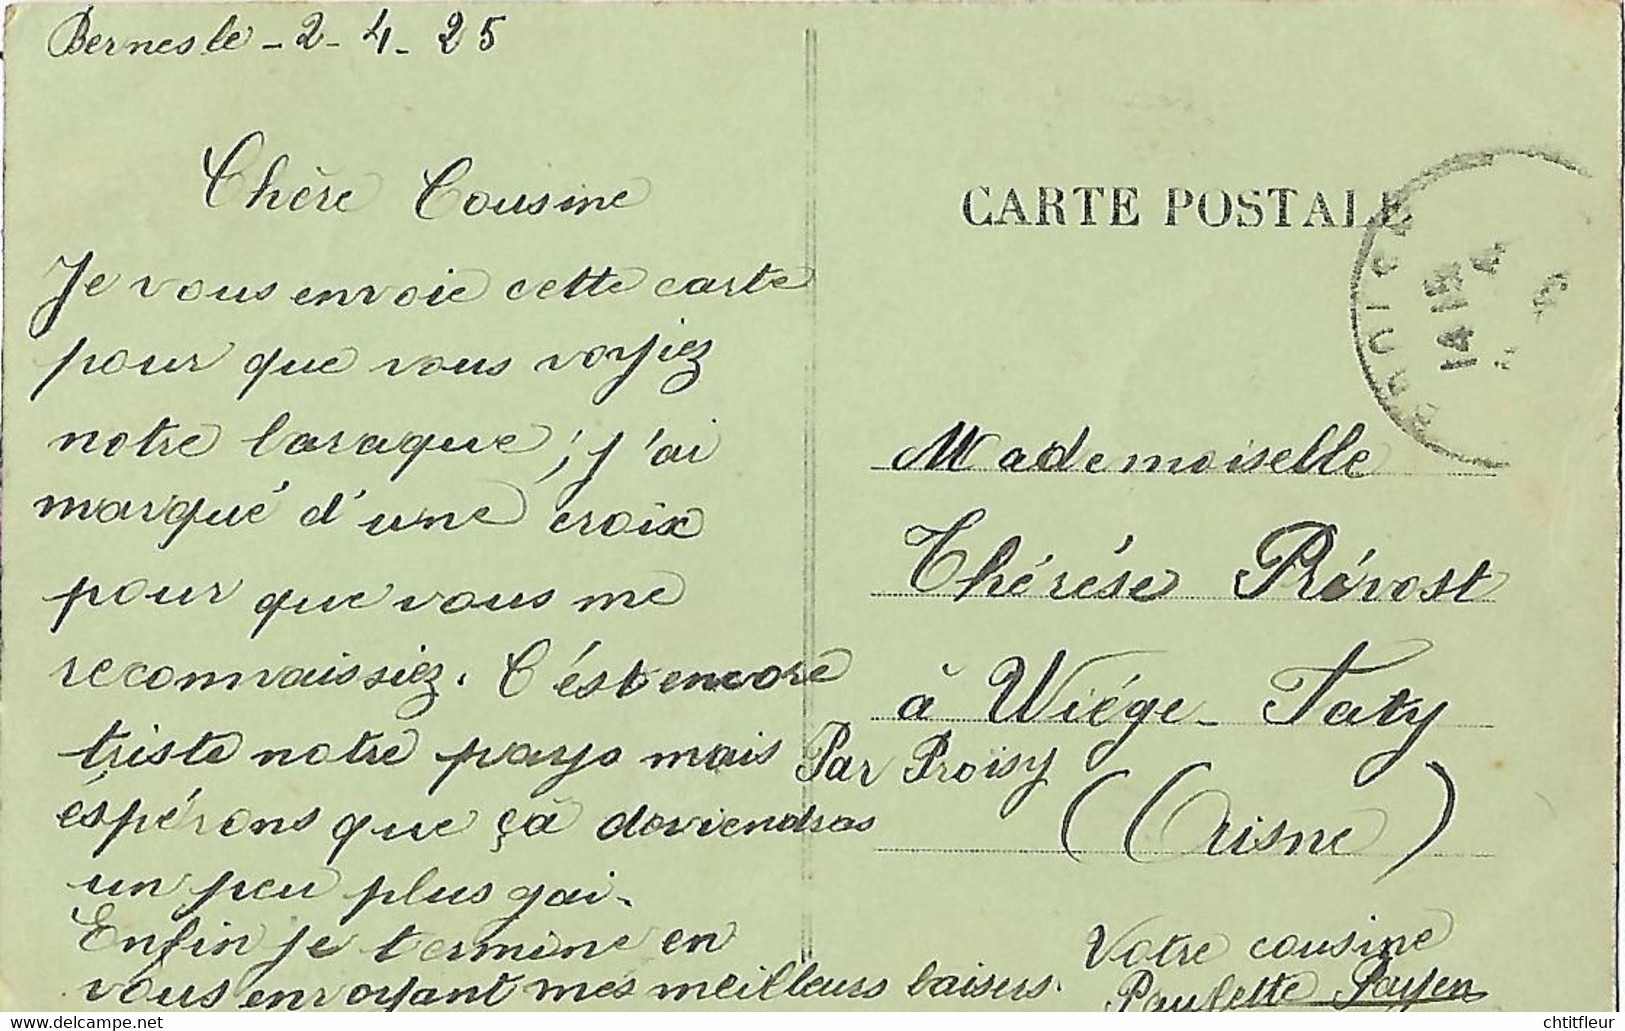 Bernesle - 2 - 4 - 25
Chère Cousine
Je vous envoie cette carte
pour que vous voyiez
notre baraque ; j'ai
marqué d'une croix
pour que vous me
reconnaissiez. C'ést encore
triste notre pays mais
éspérons que çà doviendras
un peu plus gai.
Enfin je termine en
vous envoyant mes meilleurs baisers.
Votre cousine
Paulette Payen
CARTE POSTALE
Mademoiselle
Thérése Prévost
à Wiége - Faty
Par Proisy
(Aisne)
chtitfleur